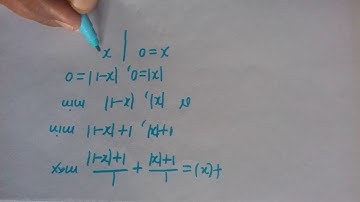 f(x) = 1/(1+|x|) + 1/(1+|x-1|) max
1+|x|, 1+|x-1| min
|x|, |x-1| min
|x|=0, |x-1|=0
x=0 | x